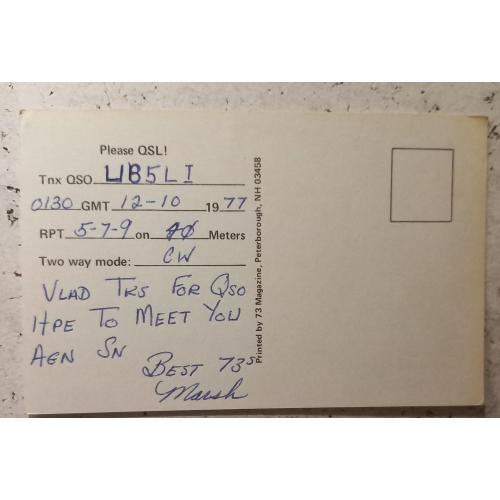 Please QSL!
Tnx QSO UB5LI
0130 GMT 12-10 1977
RPT 5-7-9 on Meters
Two way mode: CW
VLAD TKS FOR QSO
HPE TO MEET YOU
AGN SN
BEST 73s
Marsh
Printed by 73 Magazine, Peterborough, NH 03458